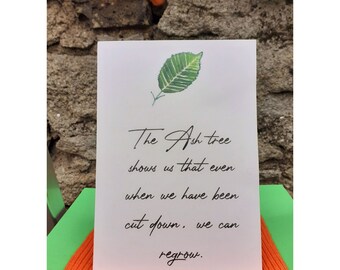 The Ash tree
shows us that even
when we have been
cut down, we can
regrow.